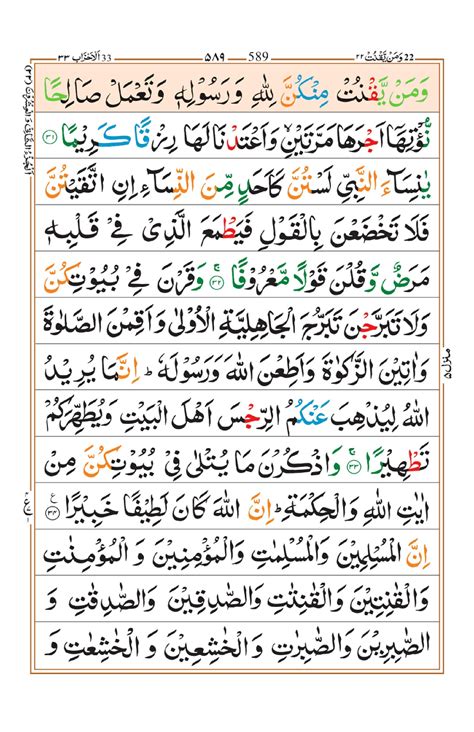 ومن يقنت ٢٢ 22 589 ٥٨٩ الاحزاب 33 ٣٣
وَمَنْ يَّقْنُتْ مِنْكُنَّ لِلّٰهِ وَرَسُوْلِهٖ وَتَعْمَلْ صَالِحًا
نُّؤْتِهَاۤ اَجْرَهَا مَرَّتَيْنِ وَاَعْتَدْنَا لَهَا رِزْقًا كَرِيْمًا ۝٣١
يٰنِسَآءَ النَّبِيِّ لَسْتُنَّ كَاَحَدٍ مِّنَ النِّسَآءِ اِنِ اتَّقَيْتُنَّ
فَلَا تَخْضَعْنَ بِالْقَوْلِ فَيَطْمَعَ الَّذِيْ فِيْ قَلْبِهٖ
مَرَضٌ وَّقُلْنَ قَوْلًا مَّعْرُوْفًا ۝٣٢ وَقَرْنَ فِيْ بُيُوْتِكُنَّ
وَلَا تَبَرَّجْنَ تَبَرُّجَ الْجَاهِلِيَّةِ الْاُوْلٰى وَاَقِمْنَ الصَّلٰوةَ
وَاٰتِيْنَ الزَّكٰوةَ وَاَطِعْنَ اللّٰهَ وَرَسُوْلَهٗ ؕ اِنَّمَا يُرِيْدُ
اللّٰهُ لِيُذْهِبَ عَنْكُمُ الرِّجْسَ اَهْلَ الْبَيْتِ وَيُطَهِّرَكُمْ
تَطْهِيْرًا ۝٣٣ وَاذْكُرْنَ مَا يُتْلٰى فِيْ بُيُوْتِكُنَّ مِنْ
اٰيٰتِ اللّٰهِ وَالْحِكْمَةِ ؕ اِنَّ اللّٰهَ كَانَ لَطِيْفًا خَبِيْرًا ۝٣٤
اِنَّ الْمُسْلِمِيْنَ وَالْمُسْلِمٰتِ وَالْمُؤْمِنِيْنَ وَالْمُؤْمِنٰتِ
وَالْقٰنِتِيْنَ وَالْقٰنِتٰتِ وَالصّٰدِقِيْنَ وَالصّٰدِقٰتِ وَ
الصّٰبِرِيْنَ وَالصّٰبِرٰتِ وَالْخٰشِعِيْنَ وَالْخٰشِعٰتِ وَ
منزل ٥